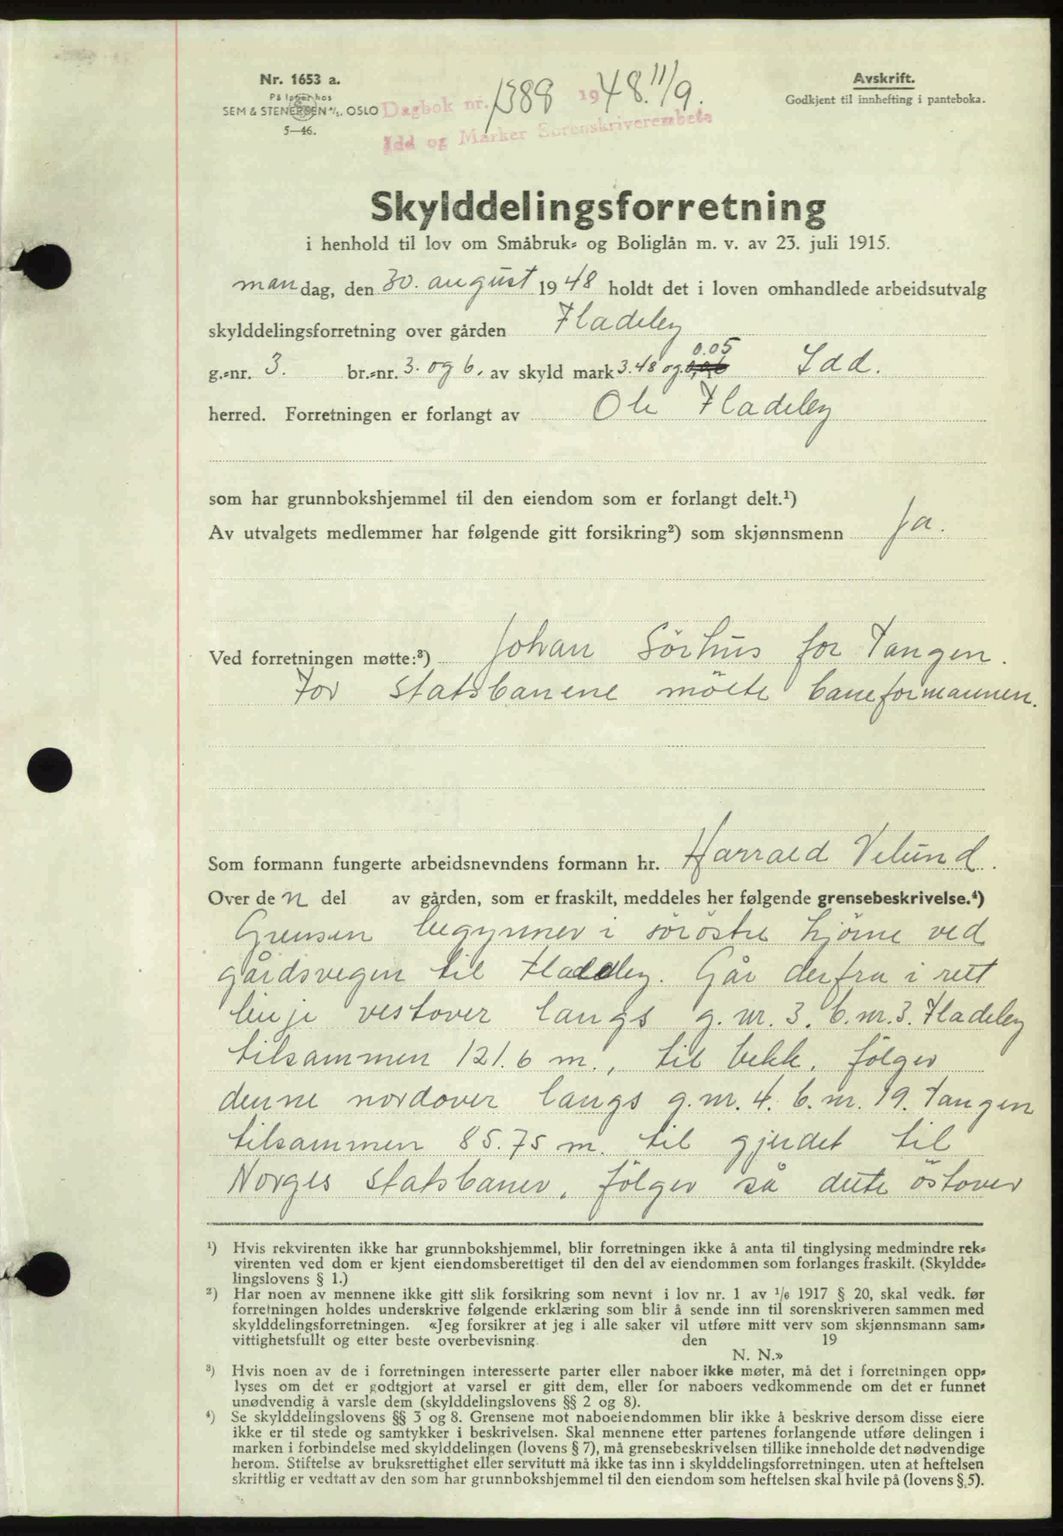 Nr. 1653 a.
På lager hos
SEM & STENERSEN A/S, OSLO
5—46.
Dagbok nr. 1388 1948. 11/9.
Idd og Marker Sorenskriverembete
Avskrift.
Godkjent til innhefting i panteboka.
Skylddelingsforretning
i henhold til lov om Småbruk- og Boliglån m. v. av 23. juli 1915.
mandag, den 30. august 1948 holdt det i loven omhandlede arbeidsutvalg
skylddelingsforretning over gården Fladeby
0.05
g.-nr. 3. br.-nr. 3. og 6. av skyld mark 3.48 og Idd.
herred. Forretningen er forlangt av Ole Fladeby
som har grunnbokshjemmel til den eiendom som er forlangt delt.¹)
Av utvalgets medlemmer har følgende gitt forsikring²) som skjønnsmenn Ja.
Ved forretningen møtte:³) Johan Sörhus for Tangen.
For statsbanene mötte baneformannen.
Som formann fungerte arbeidsnevndens formann hr. Harrald Velund.
Over den del av gården, som er fraskilt, meddeles her følgende grensebeskrivelse.⁴)
Grensen begynner i söröstre hjörne ved
gårdsvegen til Fladeby. Går derfra i rett
linje vestover langs g. nr. 3. b. nr. 3. Fladeby
tilsammen 121.6 m., til bekk. fölger
denne nordover langs g. nr. 4. b. nr. 19. Tangen
tilsammen 85.75 m. til gjerdet til
Norges Statsbaner, fölger så dette östover
¹) Hvis rekvirenten ikke har grunnbokshjemmel, blir forretningen ikke å anta til tinglysing medmindre rek-
virenten ved dom er kjent eiendomsberettiget til den del av eiendommen som forlanges fraskilt. (Skyldde-
lingslovens § 1.)
²) Har noen av mennene ikke gitt slik forsikring som nevnt i lov nr. 1 av 1/6 1917 § 20, skal vedk. før
forretningen holdes underskrive følgende erklæring som blir å sende inn til sorenskriveren sammen med
skylddelingsforretningen. «Jeg forsikrer at jeg i alle saker vil utføre mitt verv som skjønnsmann sam-
vittighetsfullt og etter beste overbevisning. den 19
N. N.»
³) Hvis noen av de i forretningen interesserte parter eller naboer ikke møter, må det i forretningen opp-
lyses om det er godtgjort at varsel er gitt dem, eller for naboers vedkommende om det er funnet
unødvendig å varsle dem (skylddelingslovens §§ 2 og 8).
⁴) Se skylddelingslovens §§ 3 og 8. Grensene mot naboeiendommen blir ikke å beskrive dersom disse eiere
ikke er til stede og samtykker i beskrivelsen. Skal mennene etter partenes forlangende utføre delingen i
marken i forbindelse med skylddelingen (lovens § 7), må grensebeskrivelsen tillike inneholde det nødvendige
herom. Stiftelse av bruksrettighet eller servitutt må ikke tas inn i skylddelingsforretningen. uten at heftelsen
skriftlig er vedtatt av den som har grunnbokshjemmel til den eiendom som heftelsen skal hvile på (lovens § 5).